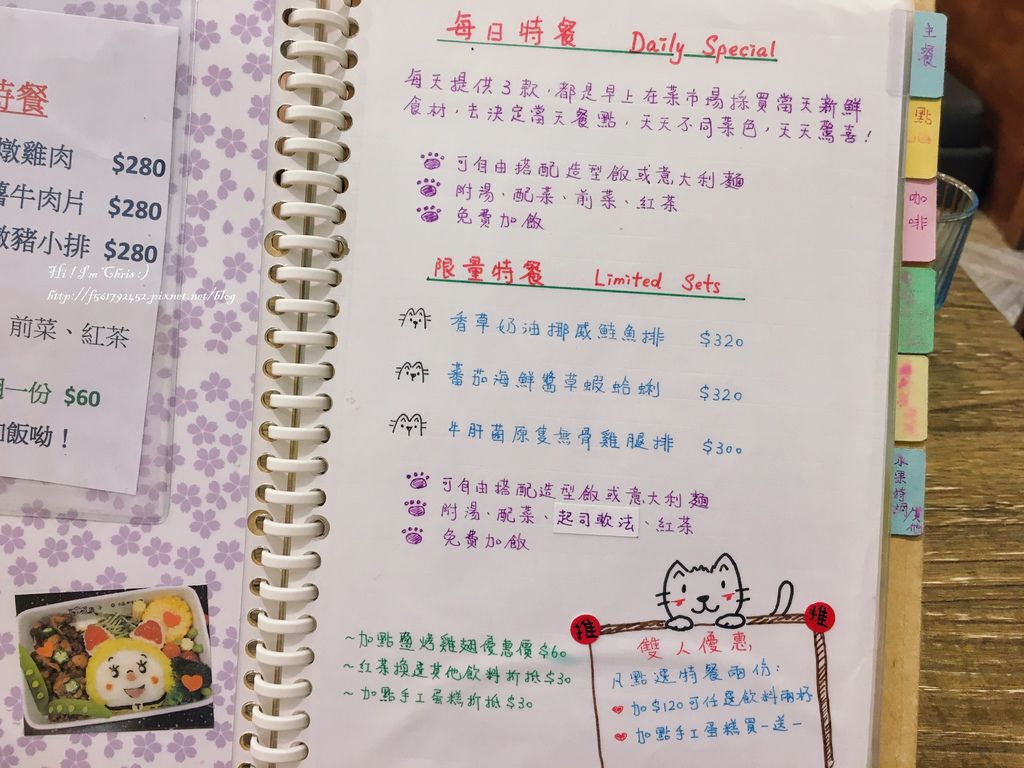 特餐
燉雞肉 $280
牛肉片 $280
豬小排 $280
Hi ! I'm Chris :)
http://f561792452.pixnet.net/blog
前菜、紅茶
一份 $60
飯呦！
每日特餐 Daily Special
每天提供3款，都是早上在菜市場採買當天新鮮
食材，去決定當天餐點，天天不同菜色，天天驚喜！
可自由搭配造型飯或意大利麵
附湯、配菜、前菜、紅茶
免費加飯
限量特餐 Limited Sets
香草奶油挪威鮭魚排 $320
蕃茄海鮮醬草蝦蛤蜊 $320
牛肝菌原隻無骨雞腿排 $300
可自由搭配造型飯或意大利麵
附湯、配菜、起司軟法、紅茶
免費加飯
~加點鹽烤雞翅優惠價$60
~紅茶換選其他飲料折抵$30
~加點手工蛋糕折抵$30
推 推
雙人優惠,
凡點選特餐兩份:
加$120可任選飲料兩杯
加點手工蛋糕買一送一
主餐
點心
咖啡
水果特調
其他